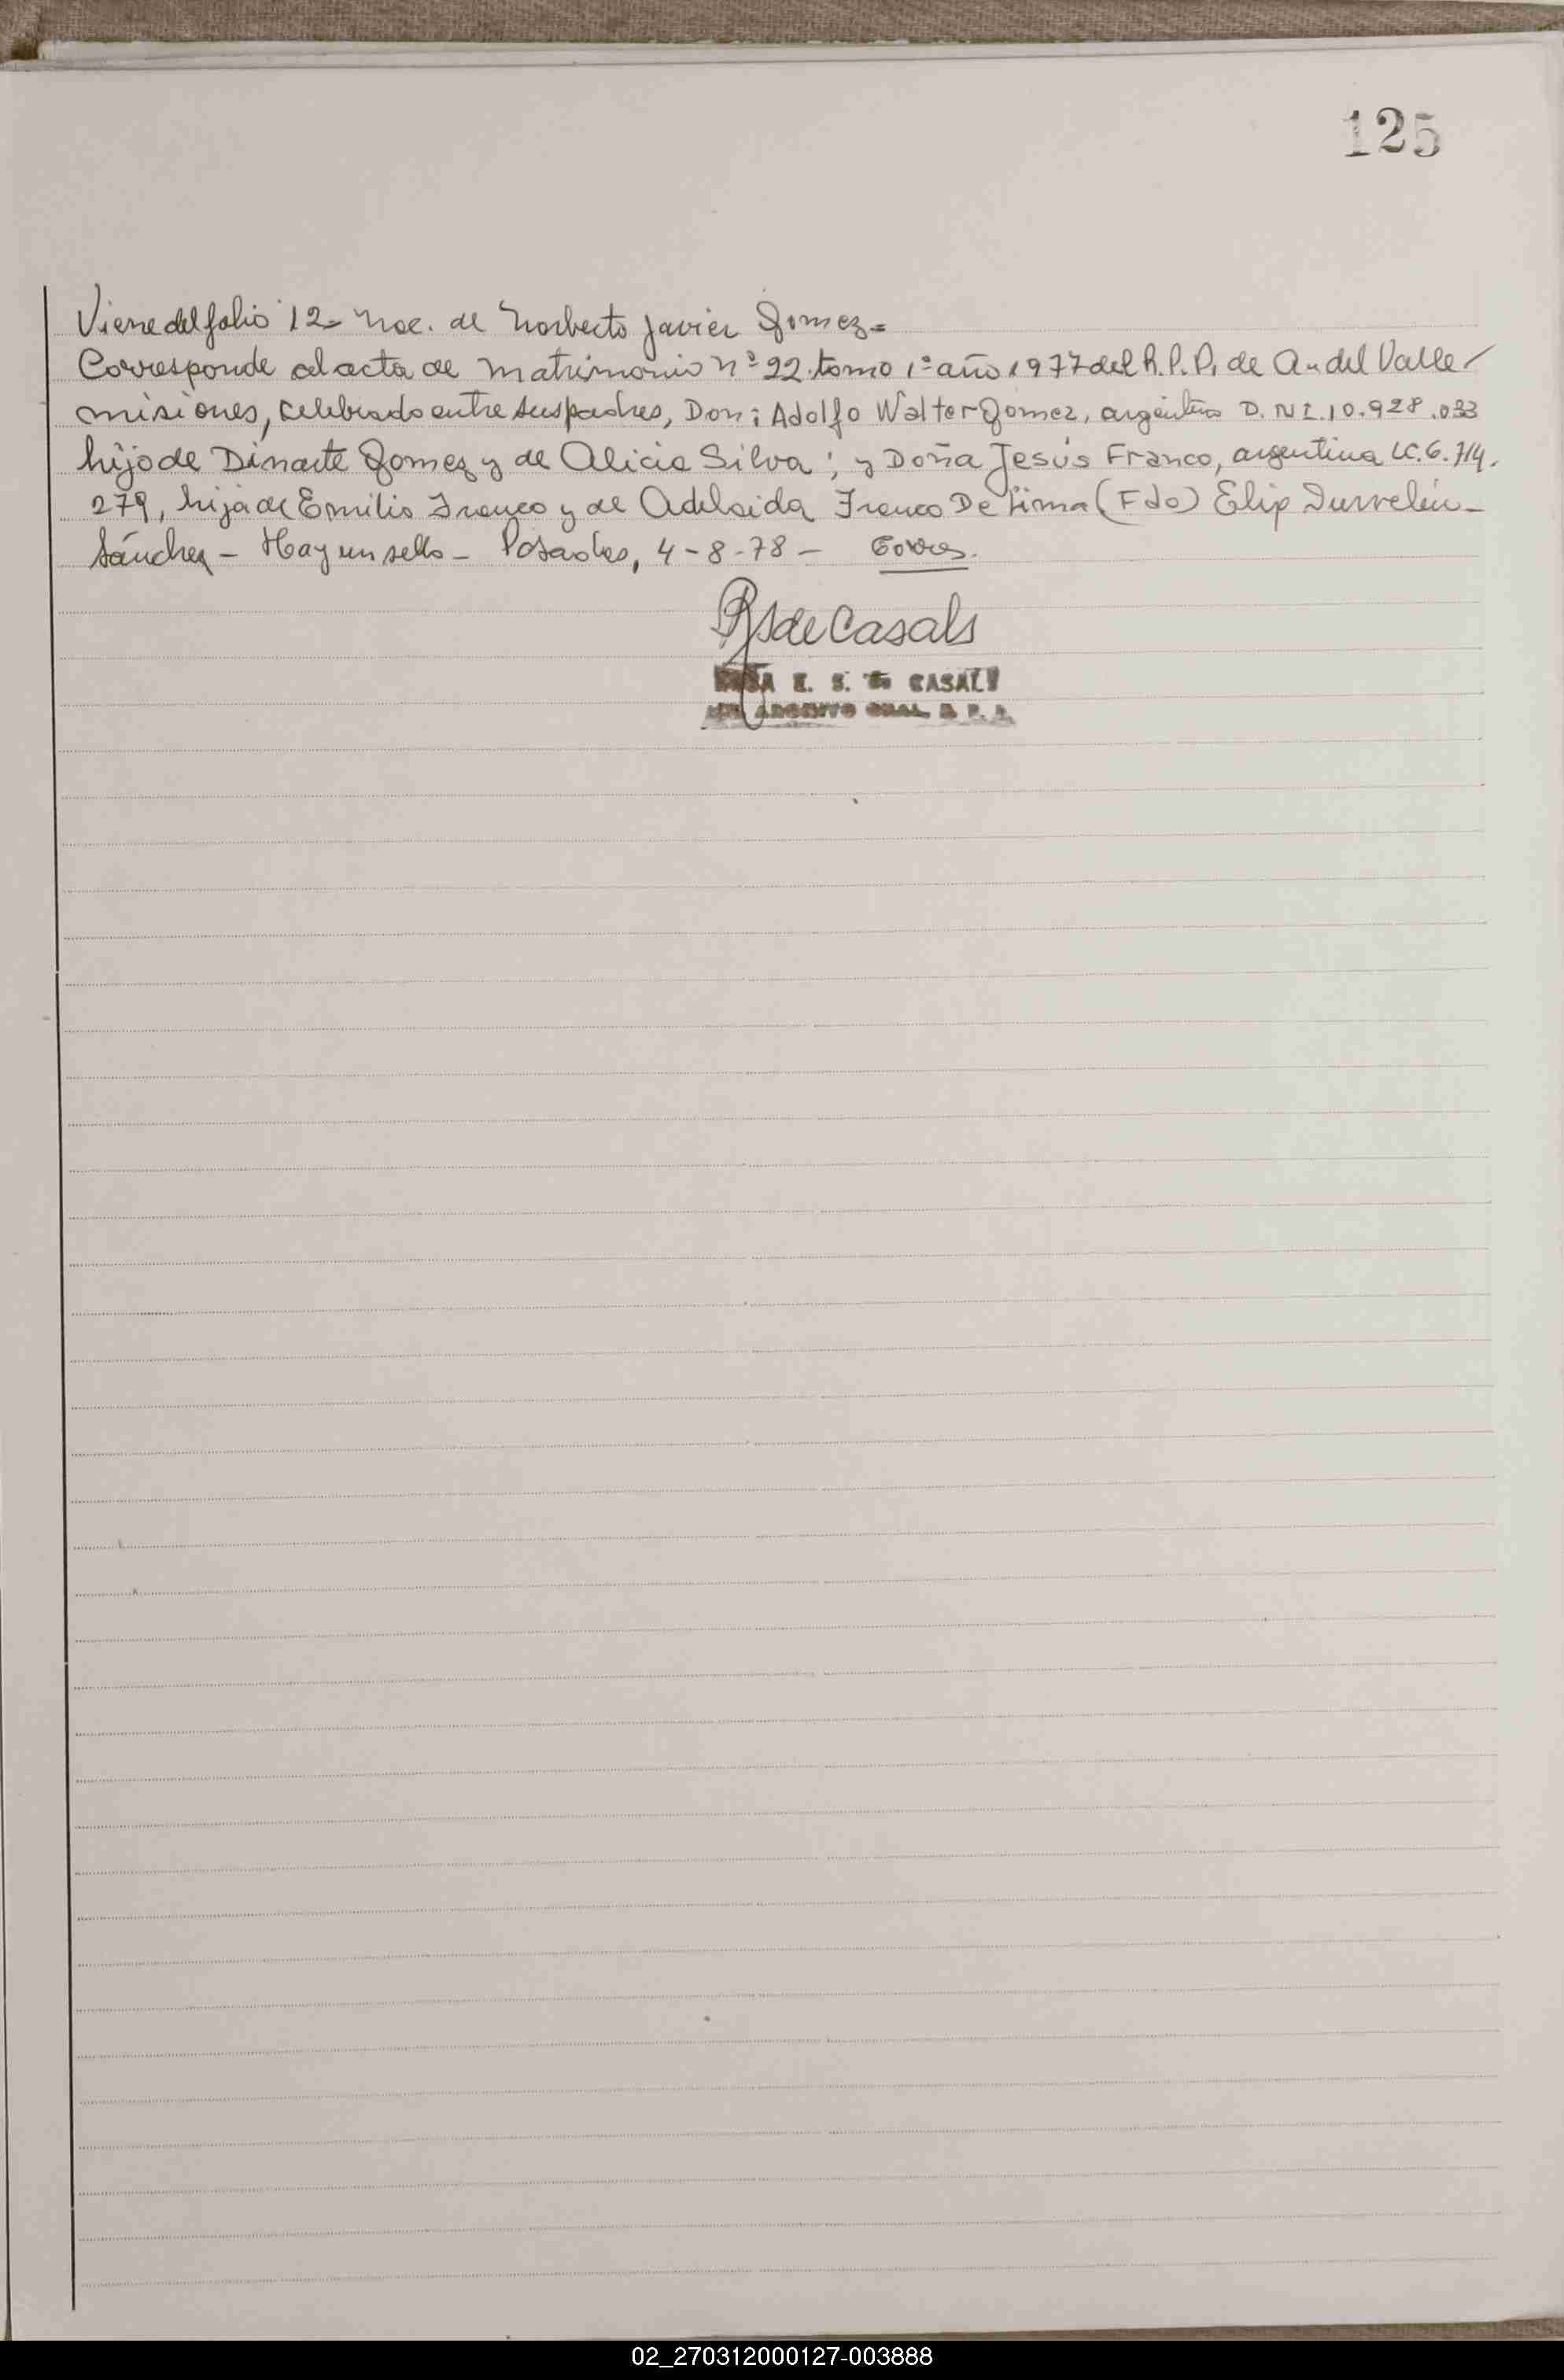 125
Viene del folio 12- Nac. de Norberto Javier Gomez=
Corresponde al acta de matrimonio nº 22 tomo 1º año 1977 del R.P.P. de A. del Valle
misiones, celebrado entre sus padres, Don: Adolfo Walter Gomez, argentino D.N.I. 10.928.033
hijo de Dinarte Gomez y de Alicia Silva; y Doña Jesús Franco, argentina LC. 6.714.
279, hija de Emilio Franco y de Adelaida Franco De Lima (Fdo) Elip
Sánchez - Hay un sello - Posadas, 4-8-78 -
RS de Casals
E. S. de CASALS
ARCHIVO GRAL. R. P. P.
02_270312000127-003888